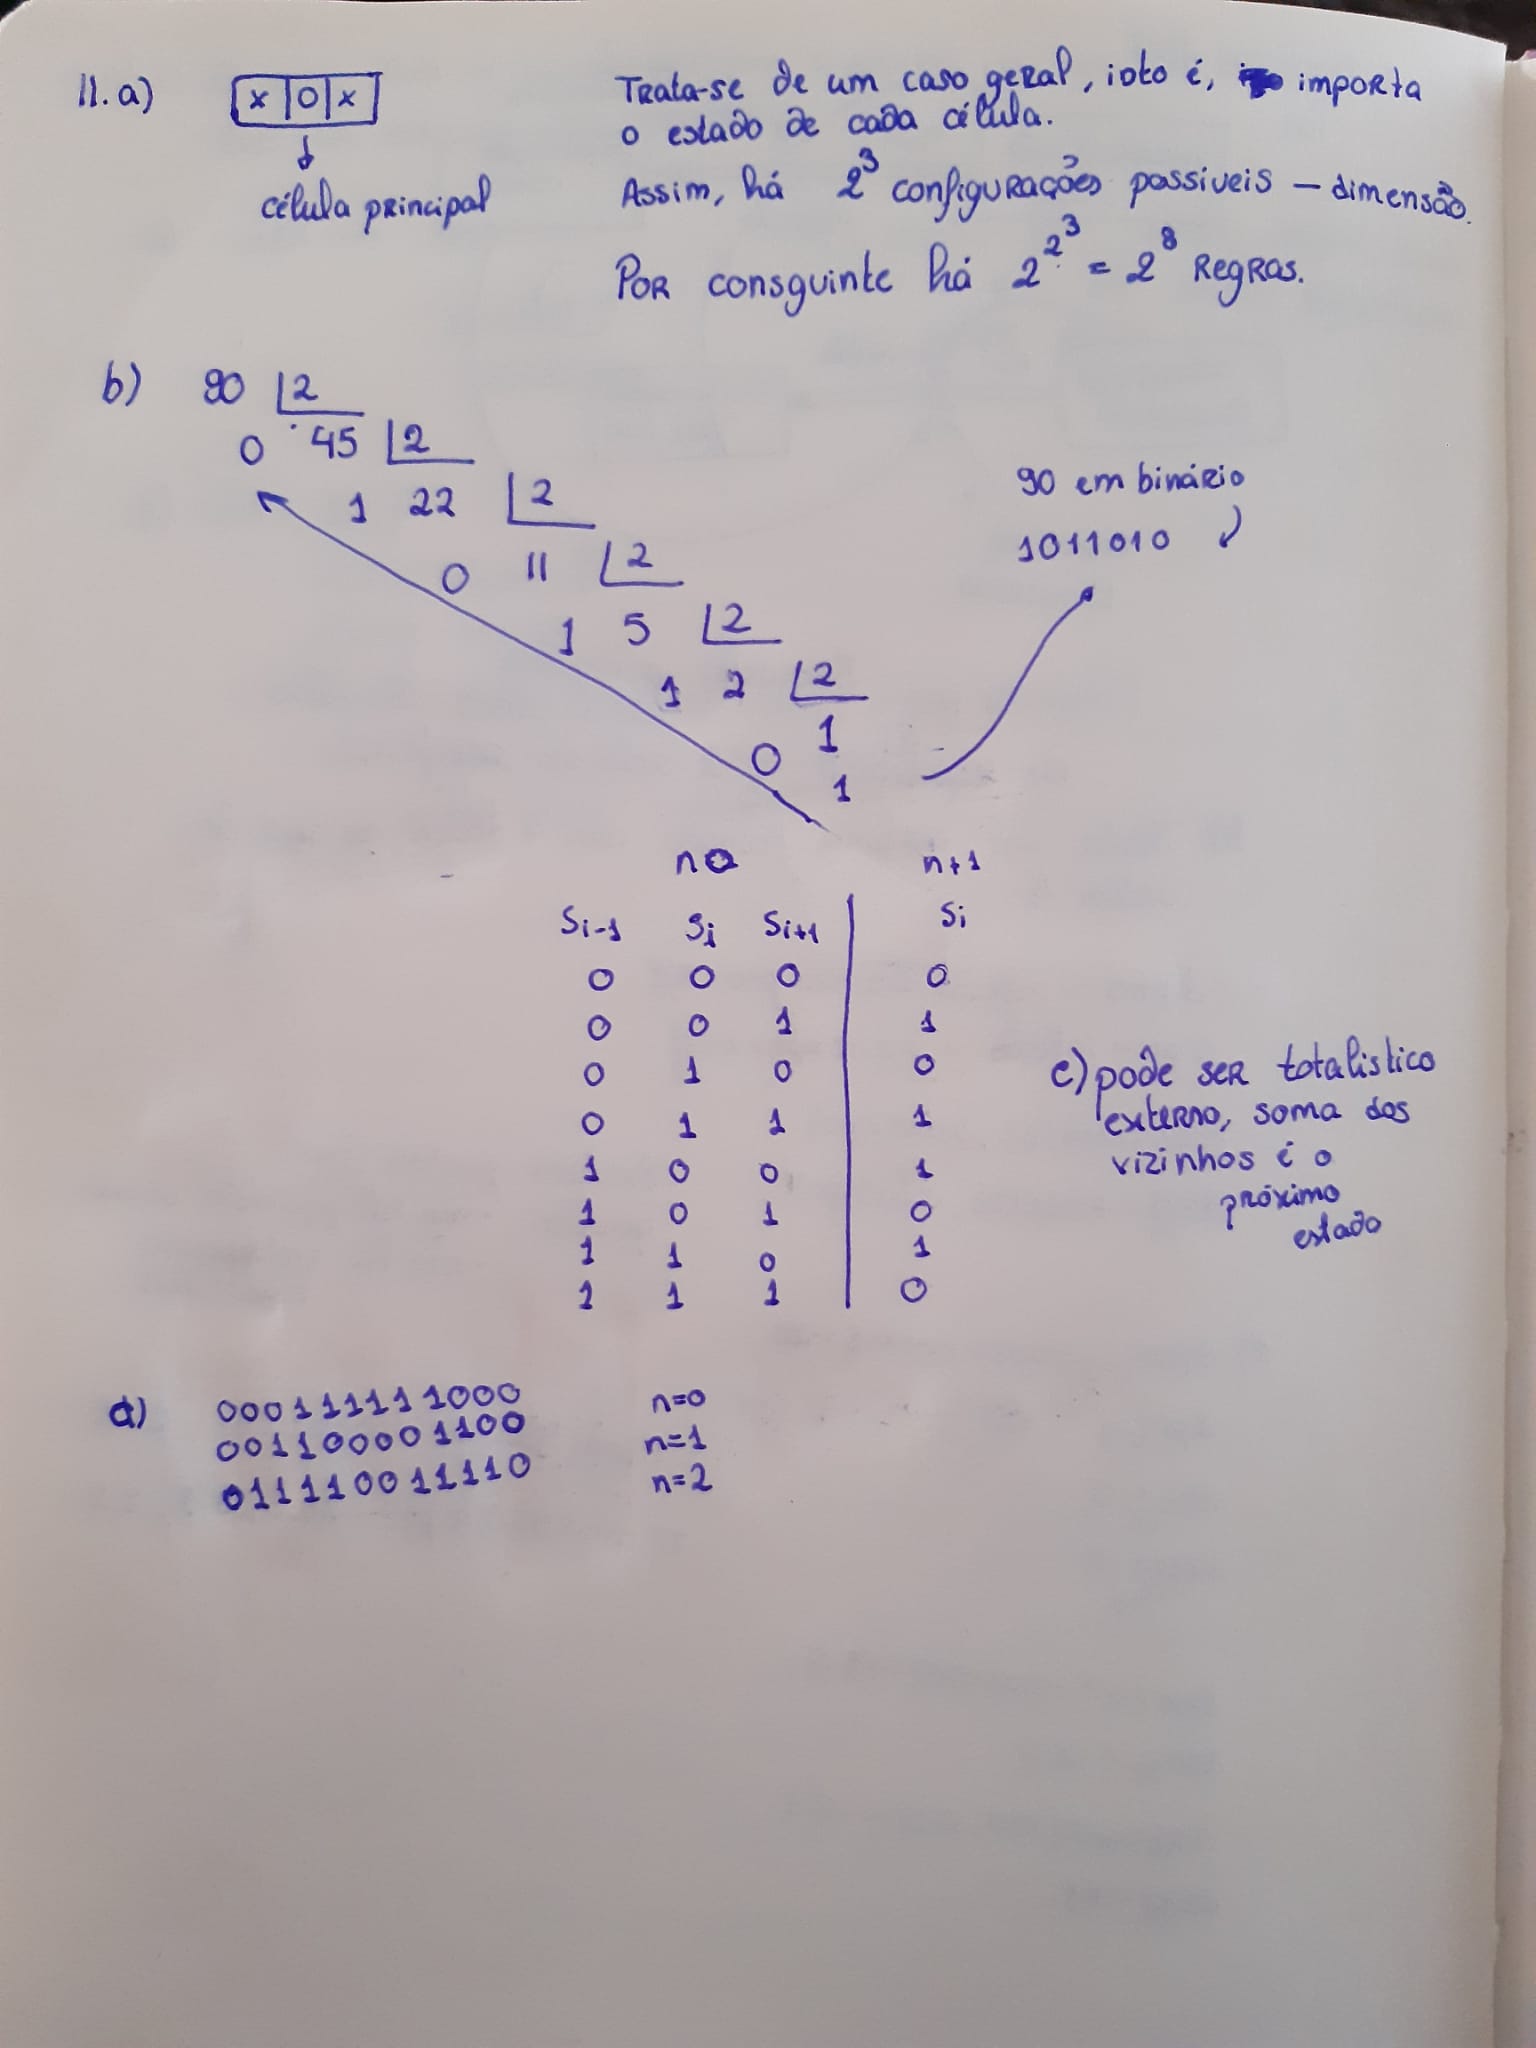 11. a) x 0 x
célula principal
Trata-se de um caso geral, isto é, importa
o estado de cada célula.
Assim, há 2^3 configurações possiveis — dimensão.
Por consguinte há 2^2^3 = 2^8 Regras.
b) 90 2
0 45 2
1 22 2
0 11 2
1 5 2
1 2 2
0 1
1
90 em binário
1011010
n n+1
Si-1 Si Si+1 Si
0 0 0 0
0 0 1 1
0 1 0 0
0 1 1 1
1 0 0 1
1 0 1 0
1 1 0 1
1 1 1 0
c) pode ser totalistico
externo, soma dos
vizinhos é o
próximo
estado
d) 000111111000 n=0
001100001100 n=1
011110011110 n=2